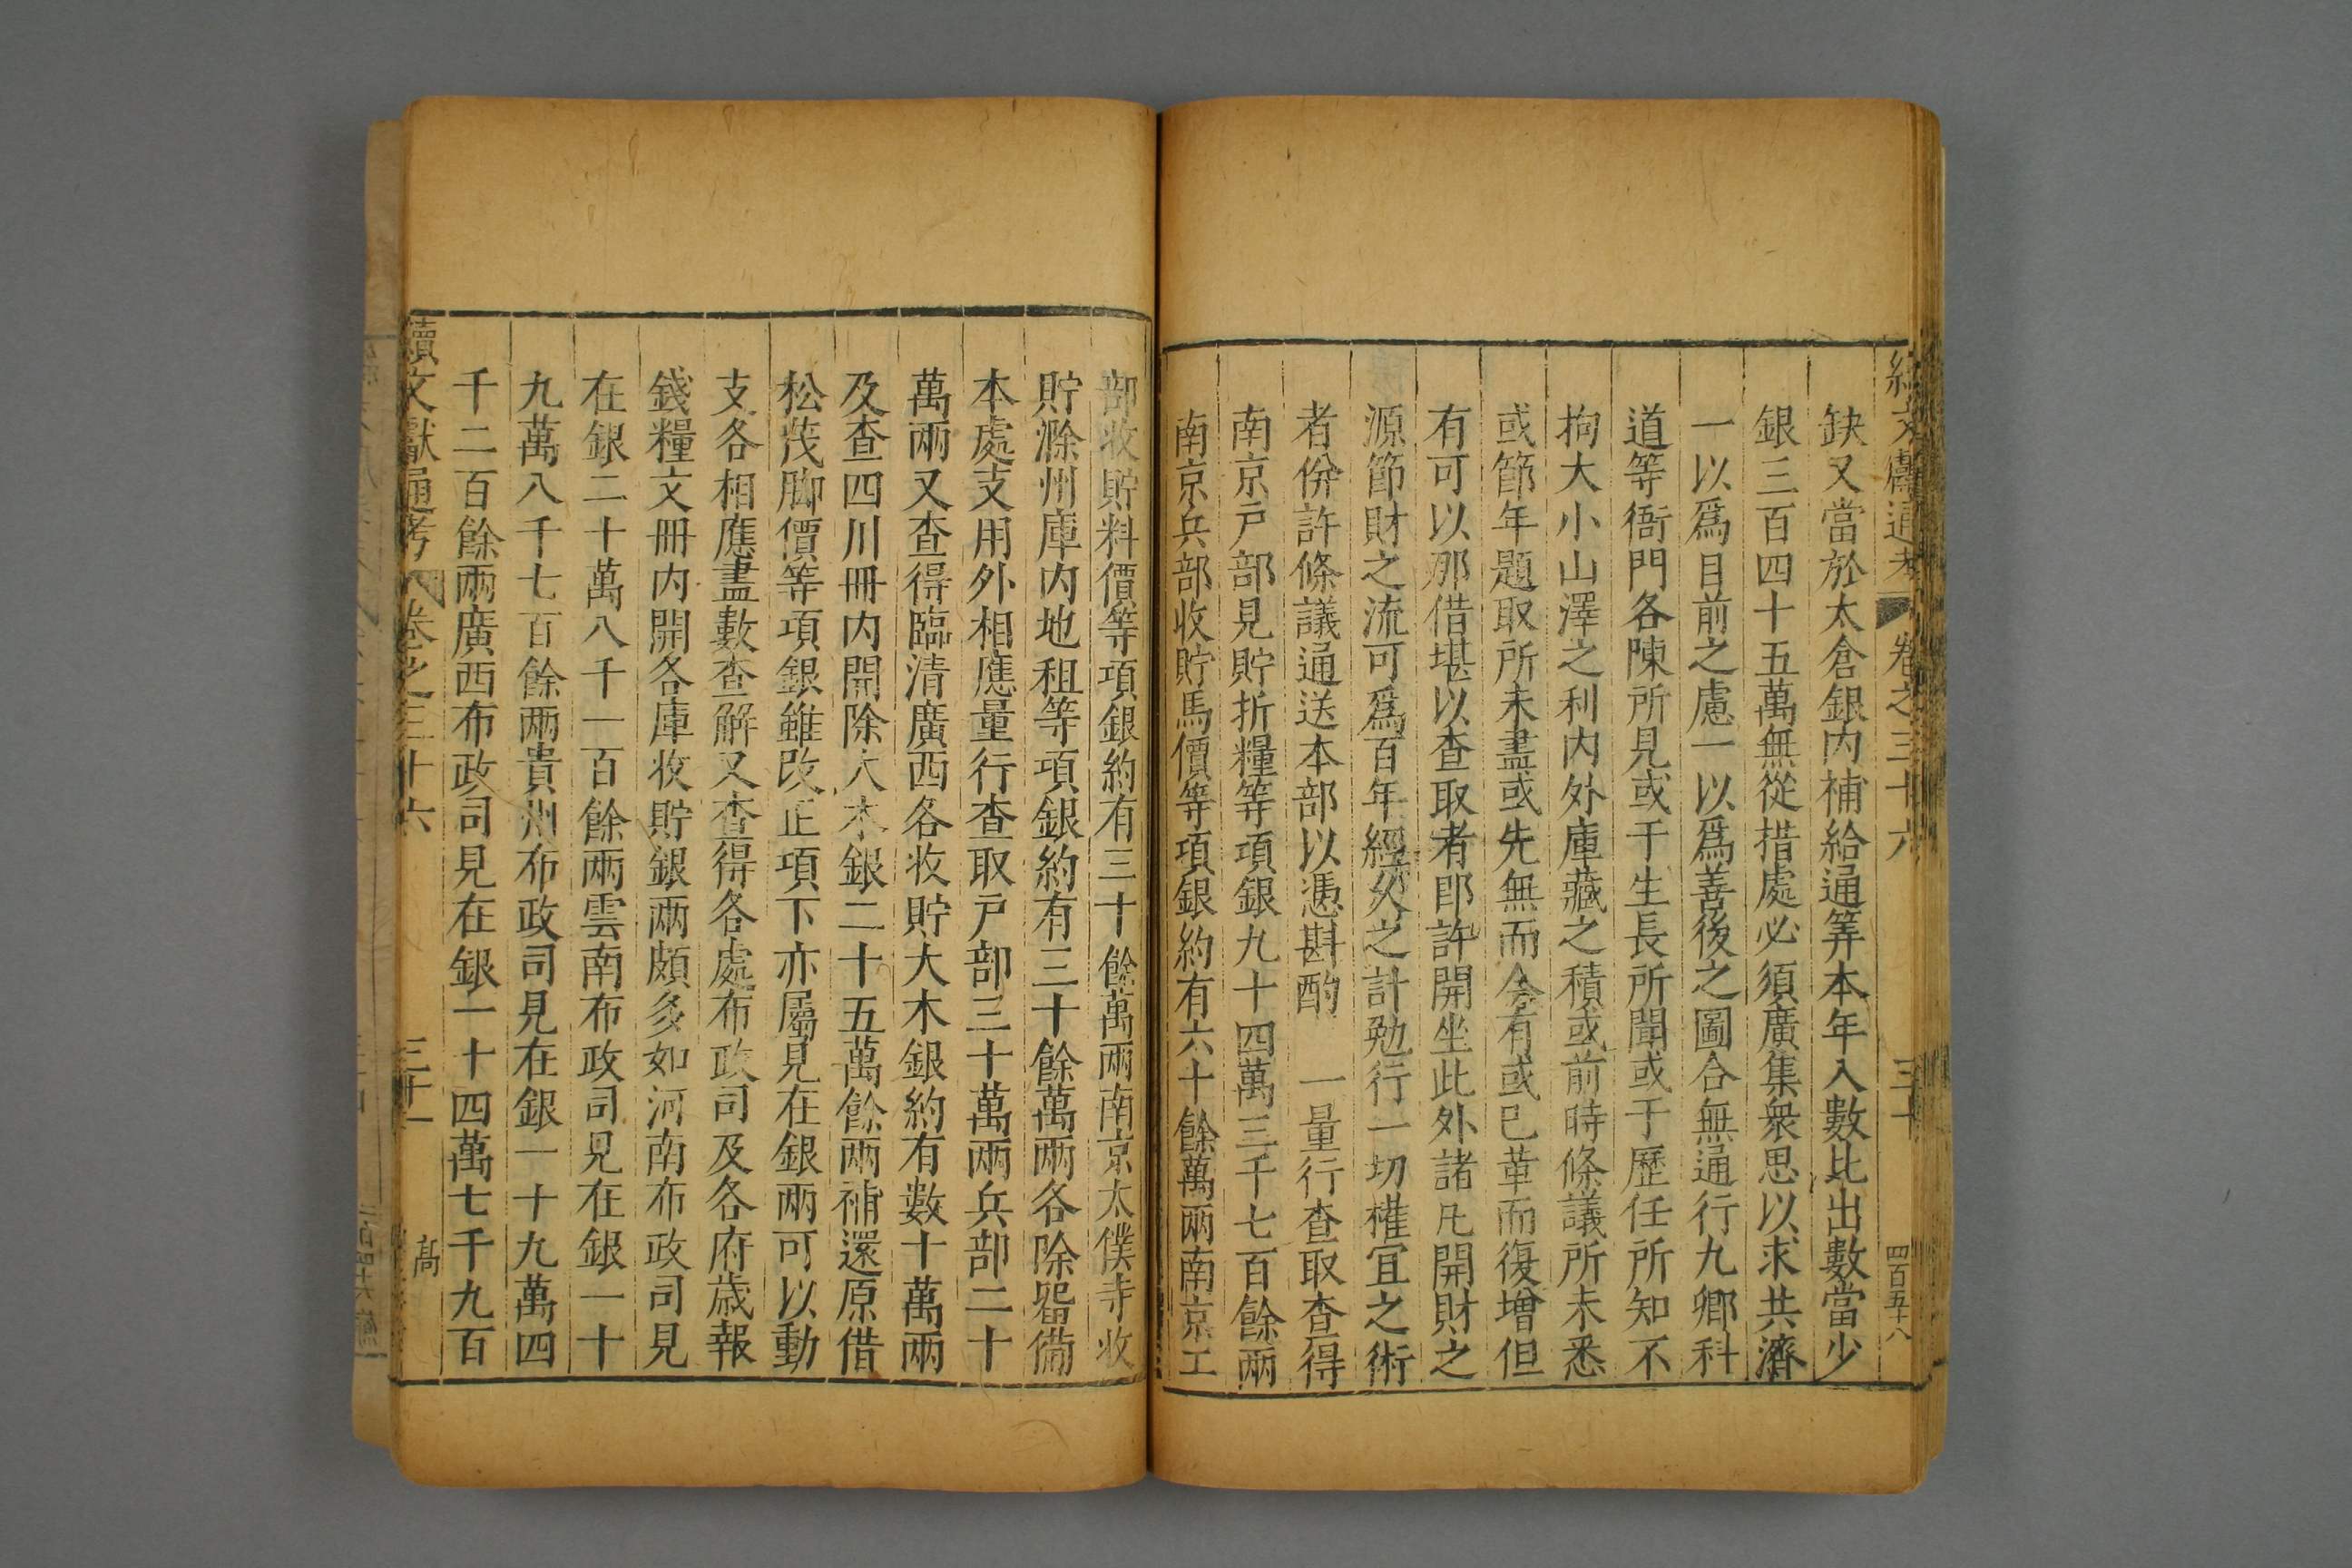 續文獻通考 卷之三十六 三十 四百五十八
缺又當於太倉銀内補給通筭本年入數比出數當少
銀三百四十五萬無從措處必須廣集衆思以求共濟
一以爲目前之慮一以爲善後之圖合無通行九卿科
道等衙門各陳所見或于生長所聞或于歷任所知不
拘大小山澤之利内外庫藏之積或前時條議所未悉
或節年題取所未盡或先無而今有或已革而復增但
有可以那借堪以查取者卽許開坐此外諸凡開財之
源節財之流可爲百年經久之計勉行一切權宜之術
者併許條議通送本部以憑斟酌 一量行查取查得
南京戶部見貯折糧等項銀九十四萬三千七百餘兩
南京兵部收貯馬價等項銀約有六十餘萬兩南京工
部收貯料價等項銀約有三十餘萬兩南京太僕寺收
貯滁州庫内地租等項銀約有三十餘萬兩各除畱備
本處支用外相應量行查取戶部三十萬兩兵部二十
萬兩又查得臨清廣西各收貯大木銀約有數十萬兩
及查四川冊内開除大木銀二十五萬餘兩補還原借
松茂脚價等項銀雖改正項下亦屬見在銀兩可以動
支各相應盡數查解又查得各處布政司及各府歲報
錢糧文冊内開各庫收貯銀兩頗多如河南布政司見
在銀二十萬八千一百餘兩雲南布政司見在銀一十
九萬八千七百餘兩貴州布政司見在銀一十九萬四
千二百餘兩廣西布政司見在銀一十四萬七千九百
續文獻通考 卷之三十六 三十一 高